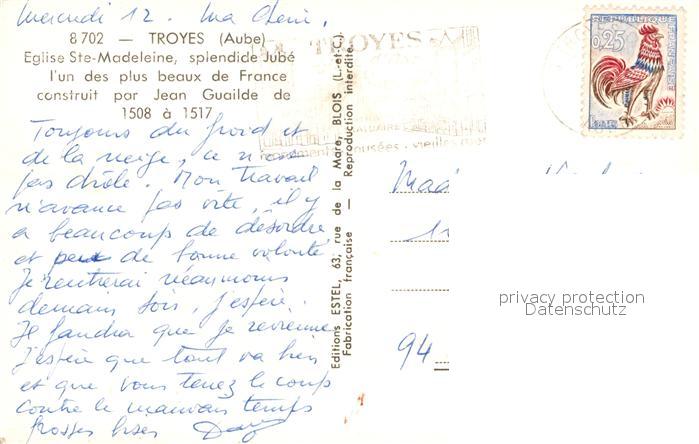 Mercredi 12. Ma
8702 — TROYES (Aube)
Eglise Ste-Madeleine, splendide Jubé
l'un des plus beaux de France
construit par Jean Guailde de
1508 à 1517
Toujours du froid et
de la neige, ce n'est
pas drôle. Mon travail
n'avance pas vite, il y
a beaucoup de désordre
et peu de bonne volonté
Je rentrerai néanmoins
demain soir, j'espère.
Il faudra que je revienne
J'espère que tout va bien
et que vous tenez le coup
contre le mauvais temps
Grosses bises
Editions ESTEL, 63, rue de la Mare, BLOIS (L.-et-C.)
Fabrication française — Reproduction interdite
TROYES
musées - vieilles rues
REPUBLIQUE FRANÇAISE
0,25
94
privacy protection
Datenschutz